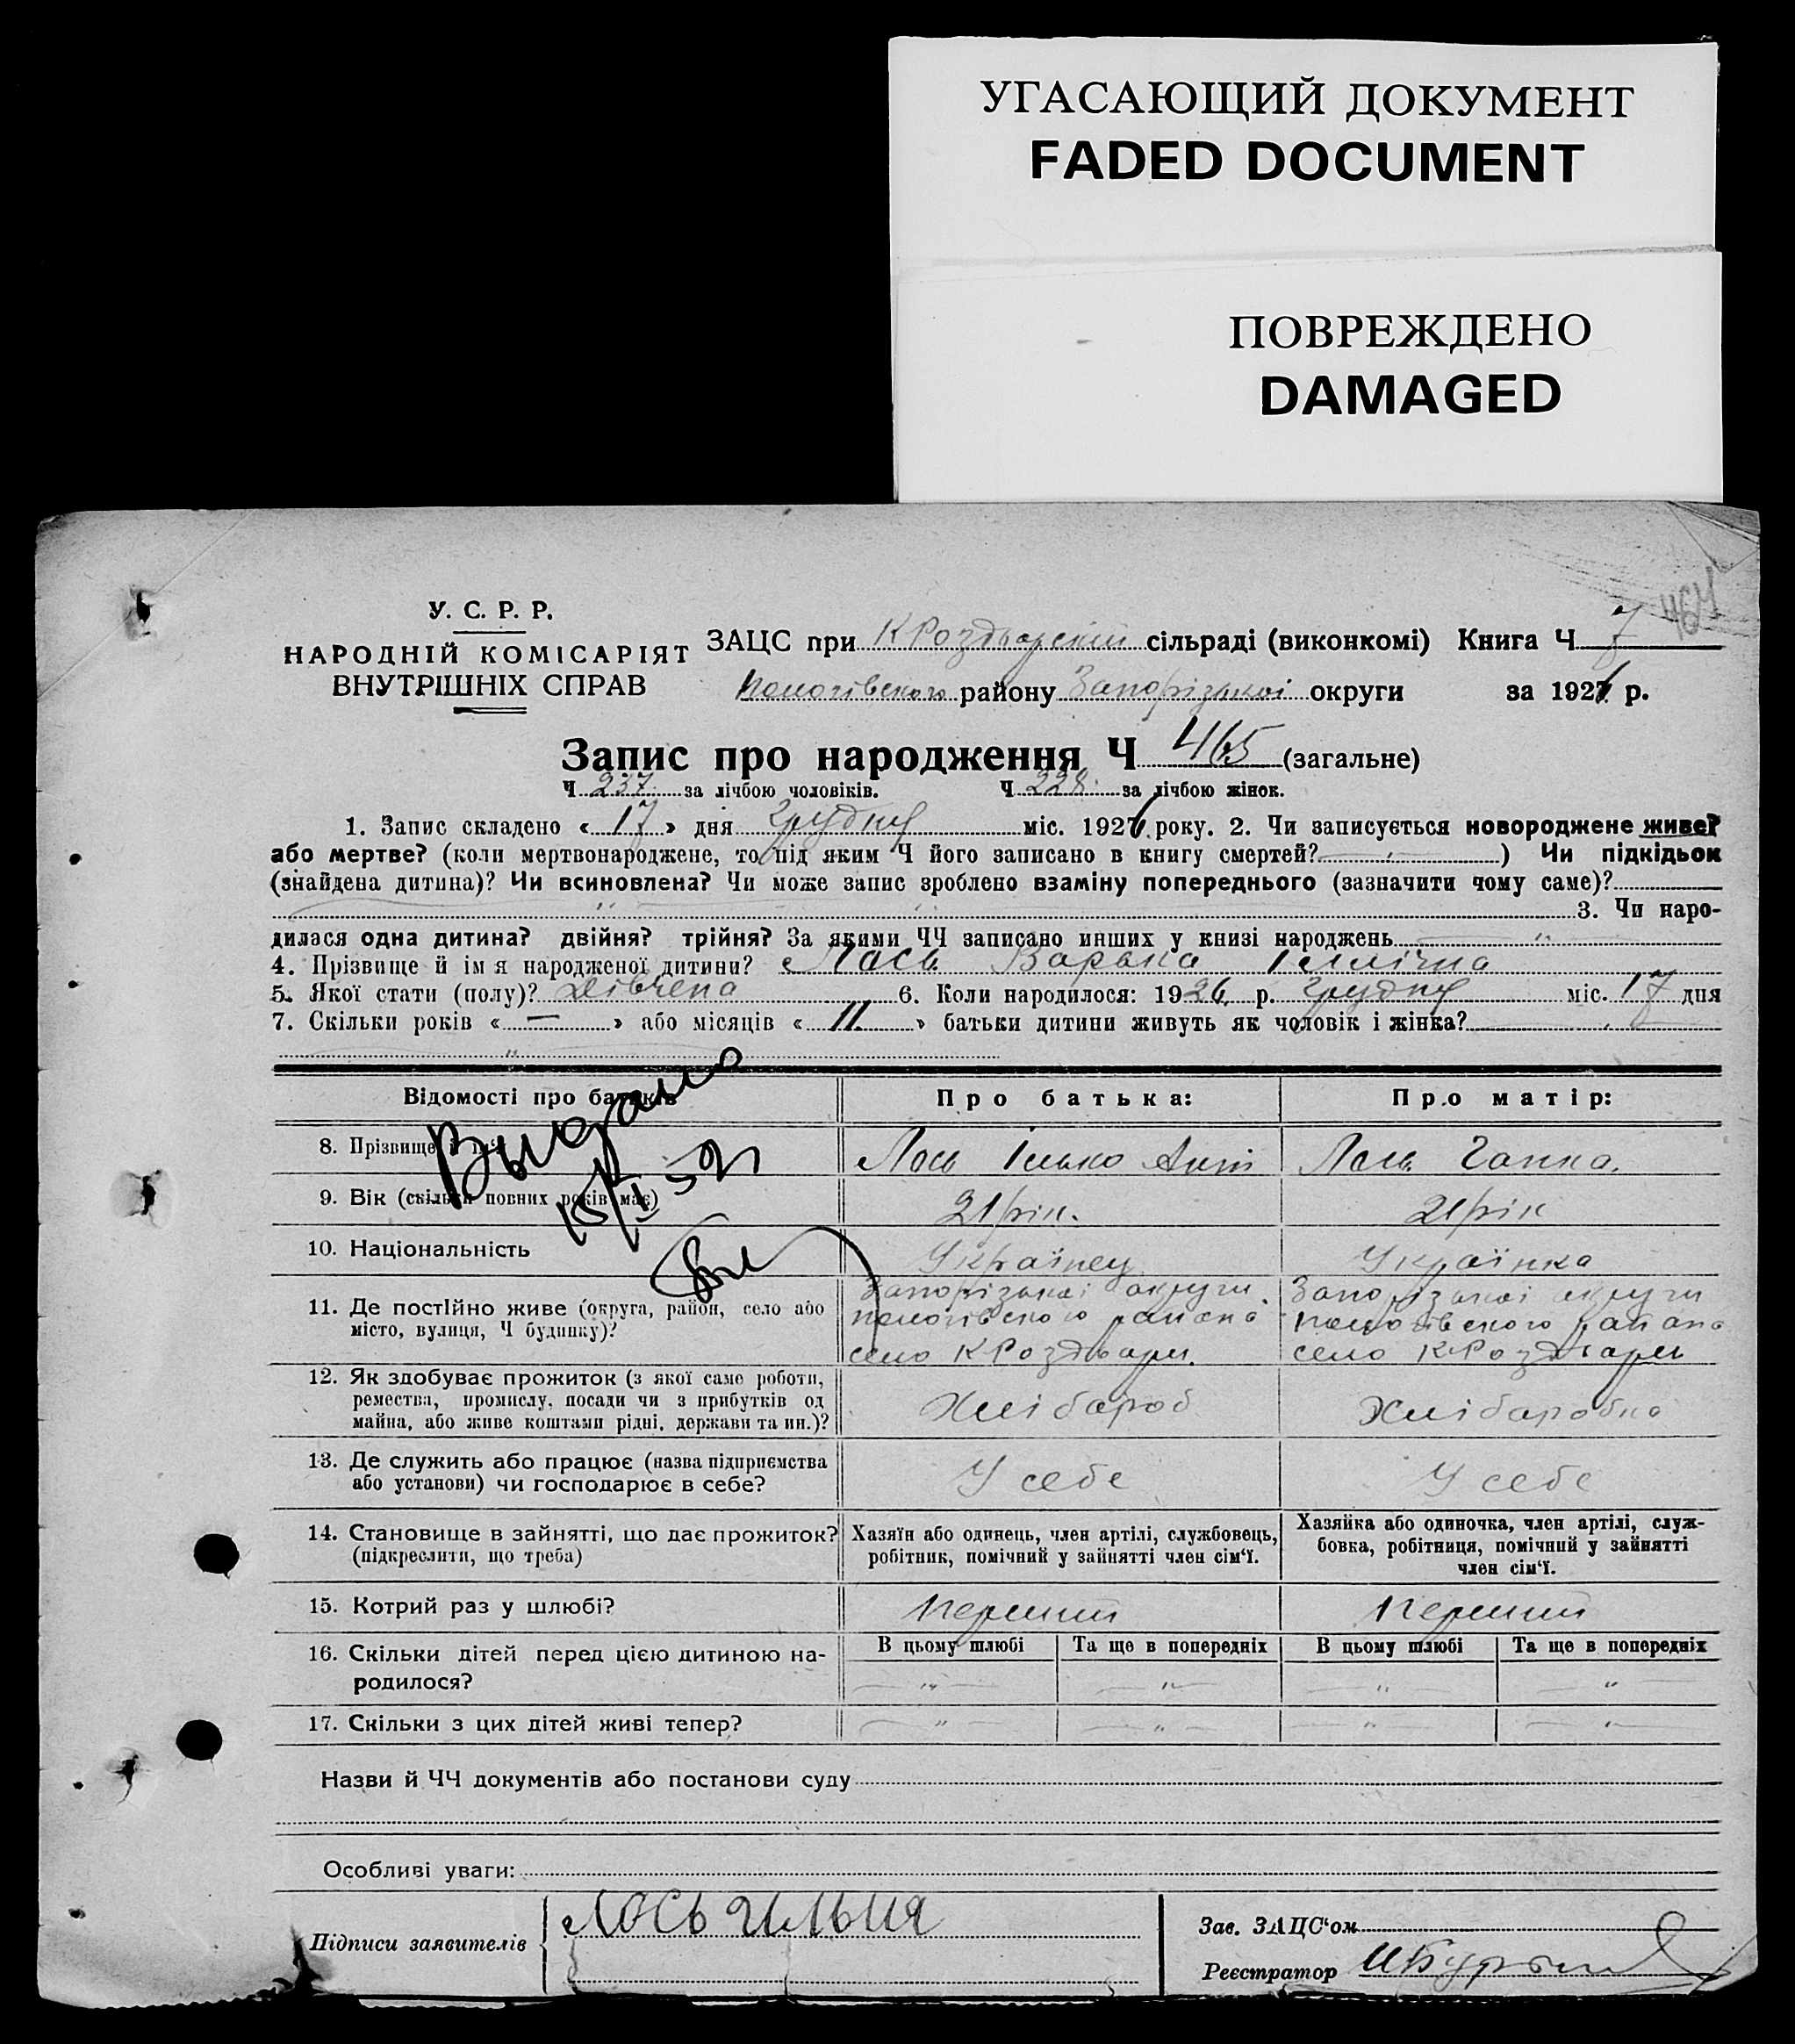 УГАСАЮЩИЙ ДОКУМЕНТ
FADED DOCUMENT
ПОВРЕЖДЕНО
DAMAGED
464
У. С. Р. Р.
НАРОДНІЙ КОМІСАРІЯТ
ВНУТРІШНІХ СПРАВ
ЗАЦС при КРоздорскій сільраді (виконкомі) Книга Ч 7
Пологівського району Запорізької округи за 1926 р.
Запис про народження Ч 465 (загальне)
Ч 237 за лічбою чоловіків. Ч 228 за лічбою жінок.
1. Запис складено « 17 » дня Грудня міс. 1926 року. 2. Чи записується новороджене живе?
або мертве? (коли мертвонароджене, то під яким Ч його записано в книгу смертей? ) Чи підкідьок
(знайдена дитина)? Чи всиновлена? Чи може запис зроблено взаміну попереднього (зазначити чому саме)?
3. Чи наро-
дилася одна дитина? двійня? трійня? За якими ЧЧ записано инших у книзі народжень
4. Прізвище й ім я народженої дитини? Лось Варька Іллічна
5. Якої стати (полу)? Дівчена 6. Коли народилося: 1926 р. Грудня міс. 17 дня
7. Скільки років « — » або місяців « 11 » батьки дитини живуть як чоловік і жінка?
Відомості про батьків Про батька: Про матір:
Выдано
8. Прізвище і ім‘я Лось Ілько Лось Ганна.
9. Вік (скільки повних років має) 21 рік. 21 рік
10. Національність Українец Українка
11. Де постійно живе (округа, район, село або
місто, вулиця, Ч будинку)?
Запорізької округи
пологівського района
село КРоздори.
Запорізької округи
пологівського района
село КРоздори
12. Як здобуває прожиток (з якої саме роботи,
ремества, промислу, посади чи з прибутків од
майна, або живе коштами рідні, держави та ин.)?
Хлібароб Хлібаробка
13. Де служить або працює (назва підприємства
або установи) чи господарює в себе?
У себе У себе
14. Становище в зайнятті, що дає прожиток?
(підкреслити, що треба)
Хазяїн або одинець, член артілі, службовець,
робітник, помічний у зайнятті член сім‘ї.
Хазяйка або одиночка, член артілі, служ-
бовка, робітниця, помічний у зайнятті
член сім‘ї.
15. Котрий раз у шлюбі? Перший Перший
16. Скільки дітей перед цією дитиною на-
родилося?
В цьому шлюбі Та ще в попередніх В цьому шлюбі Та ще в попередніх
17. Скільки з цих дітей живі тепер?
Назви й ЧЧ документів або постанови суду
Особливі уваги:
Підписи заявителів Лось Илья
Зав. ЗАЦС‘ом
Реєстратор